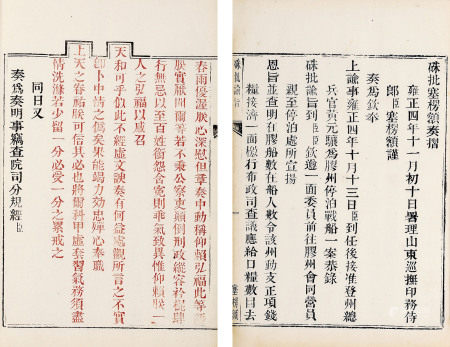 硃批塞楞額奏摺
雍正四年十一月初十日署理山東巡撫印務侍
郎臣塞楞額謹
奏為欽奉
上諭事雍正四年十月十三日臣到任後接准登州總
兵官黃元驤為膠州停泊戰船一案恭錄
硃批諭旨到臣欽遵一面委員前往膠州會同營員
親至停泊處所宣揚
恩旨並查明在膠船數在船人數令該州動支正項錢
糧接濟一面檄行布政司查議應給口糧數目去
硃批諭旨
春雨優渥朕心深慰但章奏中動稱仰賴弘福此等
朕實聞爾等若不秉公察吏顛倒刑政縱容衿棍肆
行無忌以至百姓銜怨含冤則乖氣致異惟仰賴朕一
人之弘福以感召
天和可乎似此不經虛文諛奏有何益處觀所言之不實
即卜中情之偽矣果能竭力効忠殫心奉職
上天之眷祐朕可信其必也將爾科甲虛套習氣務須盡
情洗滌若少留一分必受一分之累戒之
同日又
奏為奏明事竊查院司分規經臣